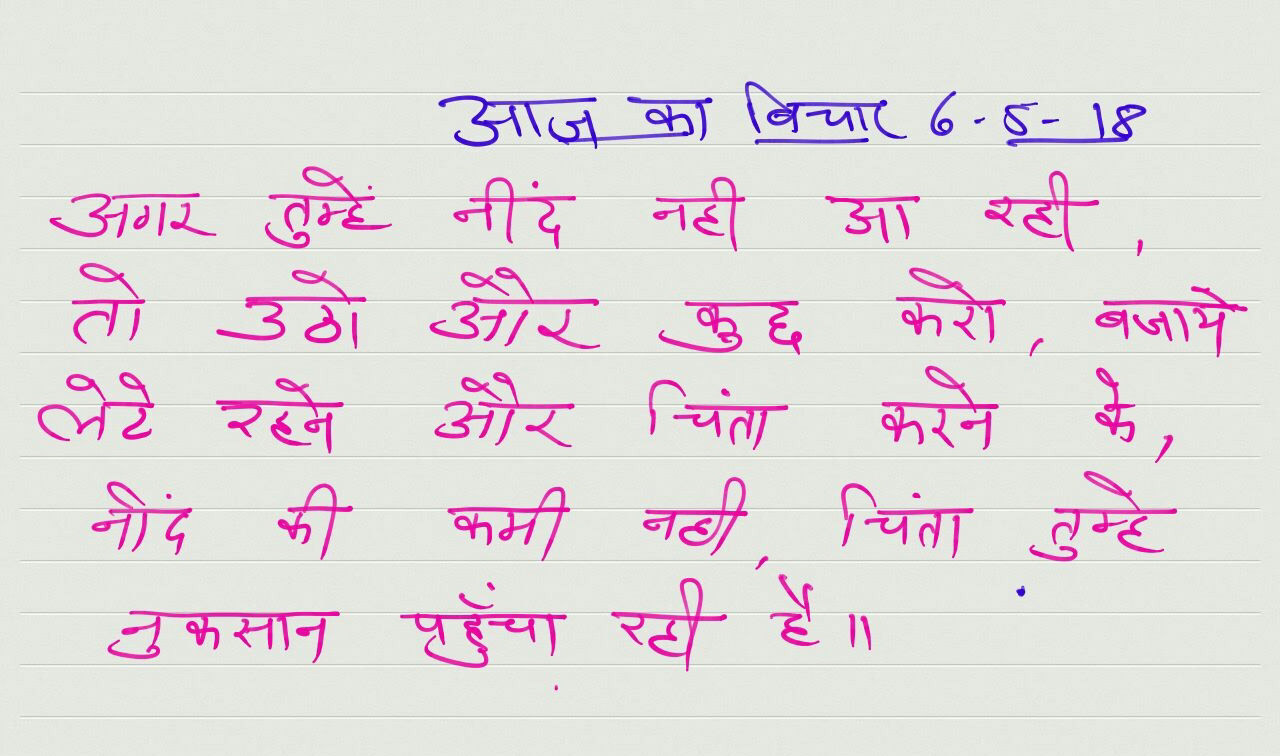 आज का विचार 6-5-18
अगर तुम्हें नींद नही आ रही,
तो उठो और कुछ करो, बजाये
लेटे रहने और चिंता करने के,
नींद की कमी नही, चिंता तुम्हे
नुकसान पहुँचा रही है॥